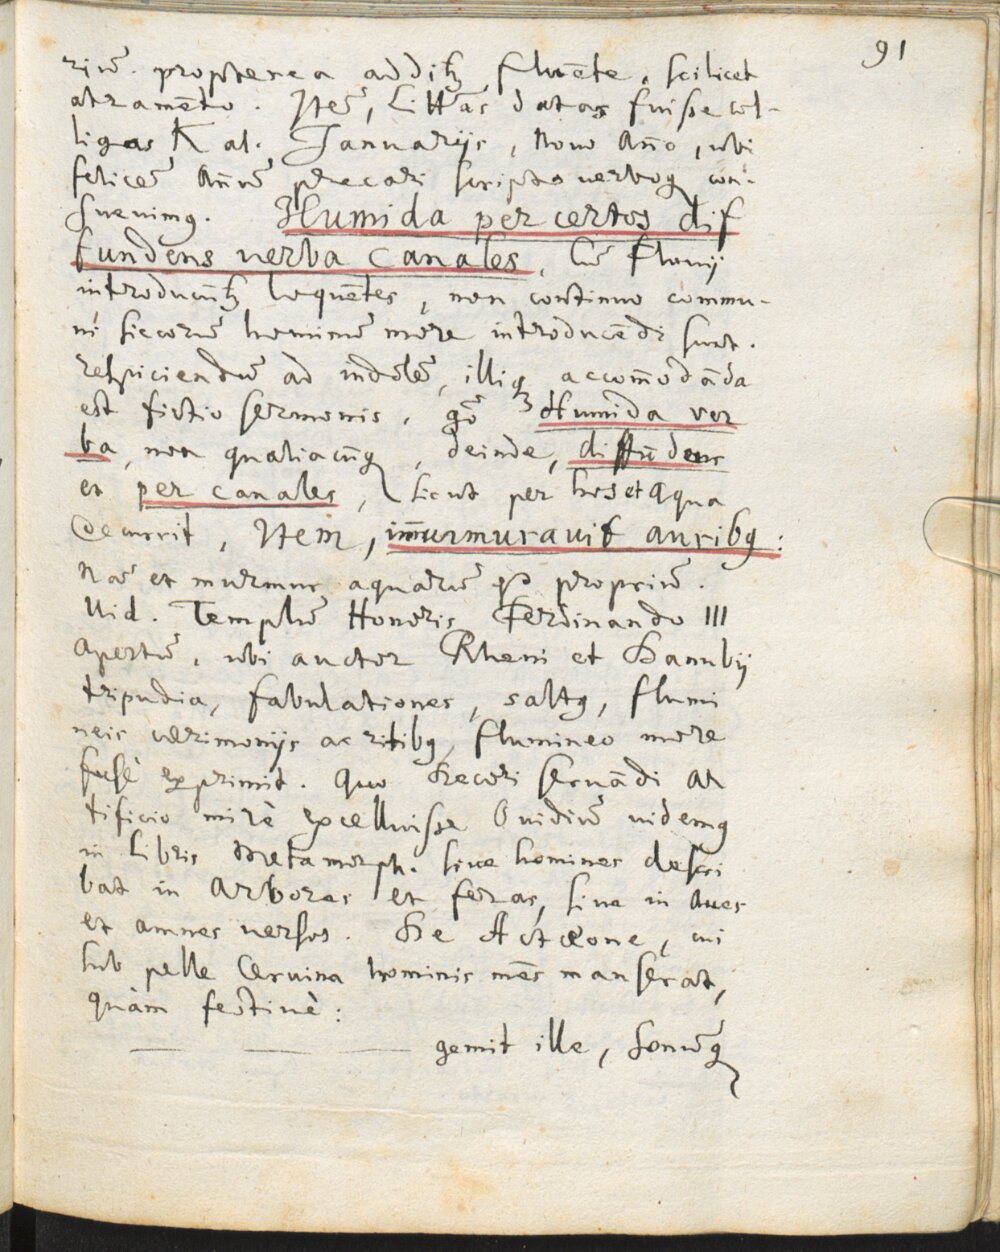 91
riũ. propterea addit᷒ fluẽte, scilicet
atramẽto. Iteũ, Littĕras datas fuisse col-
ligas Kal. Januarijs, Novo Ãno, ubi
felicẽ Ãnũ precari scripto verboq con-
suevimq. Humida per certos dif
fundens verba canales, Cũ Fluvij
introducũt᷒ loquẽtes, non continuo commu-
ni siccorũ hominũ more introducẽdi sunt.
respiciendũ ad indolẽ, illiq accom̃odãda
est fictio sermonis, gõ Humida ver
ba, non qualiacũq, deinde, diffũdens
et per canales, sicut per hos et aqua
decurrit, Item, im̃urmuravit auribq:
Nã et murmur aquarũ ẽ propriũ.
Vid. Templũ Honoris Ferdinando III
apertũ, ubi auctor Rheni et Danubij
tripudia, fabulationes, saltq, flumi
neis cærimonijs acritibq, flumineo more
fusè exprimit. Quo decori servãdi ar
tificio mirè excelluisse Ovidiũ videmq
in Libris Metamorph. sive homines descri
bat in arbores et feras, sive in aves
et amnes versos. De Actæone, cui
sub pelle Cervina hominis mẽs manserat,
quàm festivè:
gemit ille, sonũq